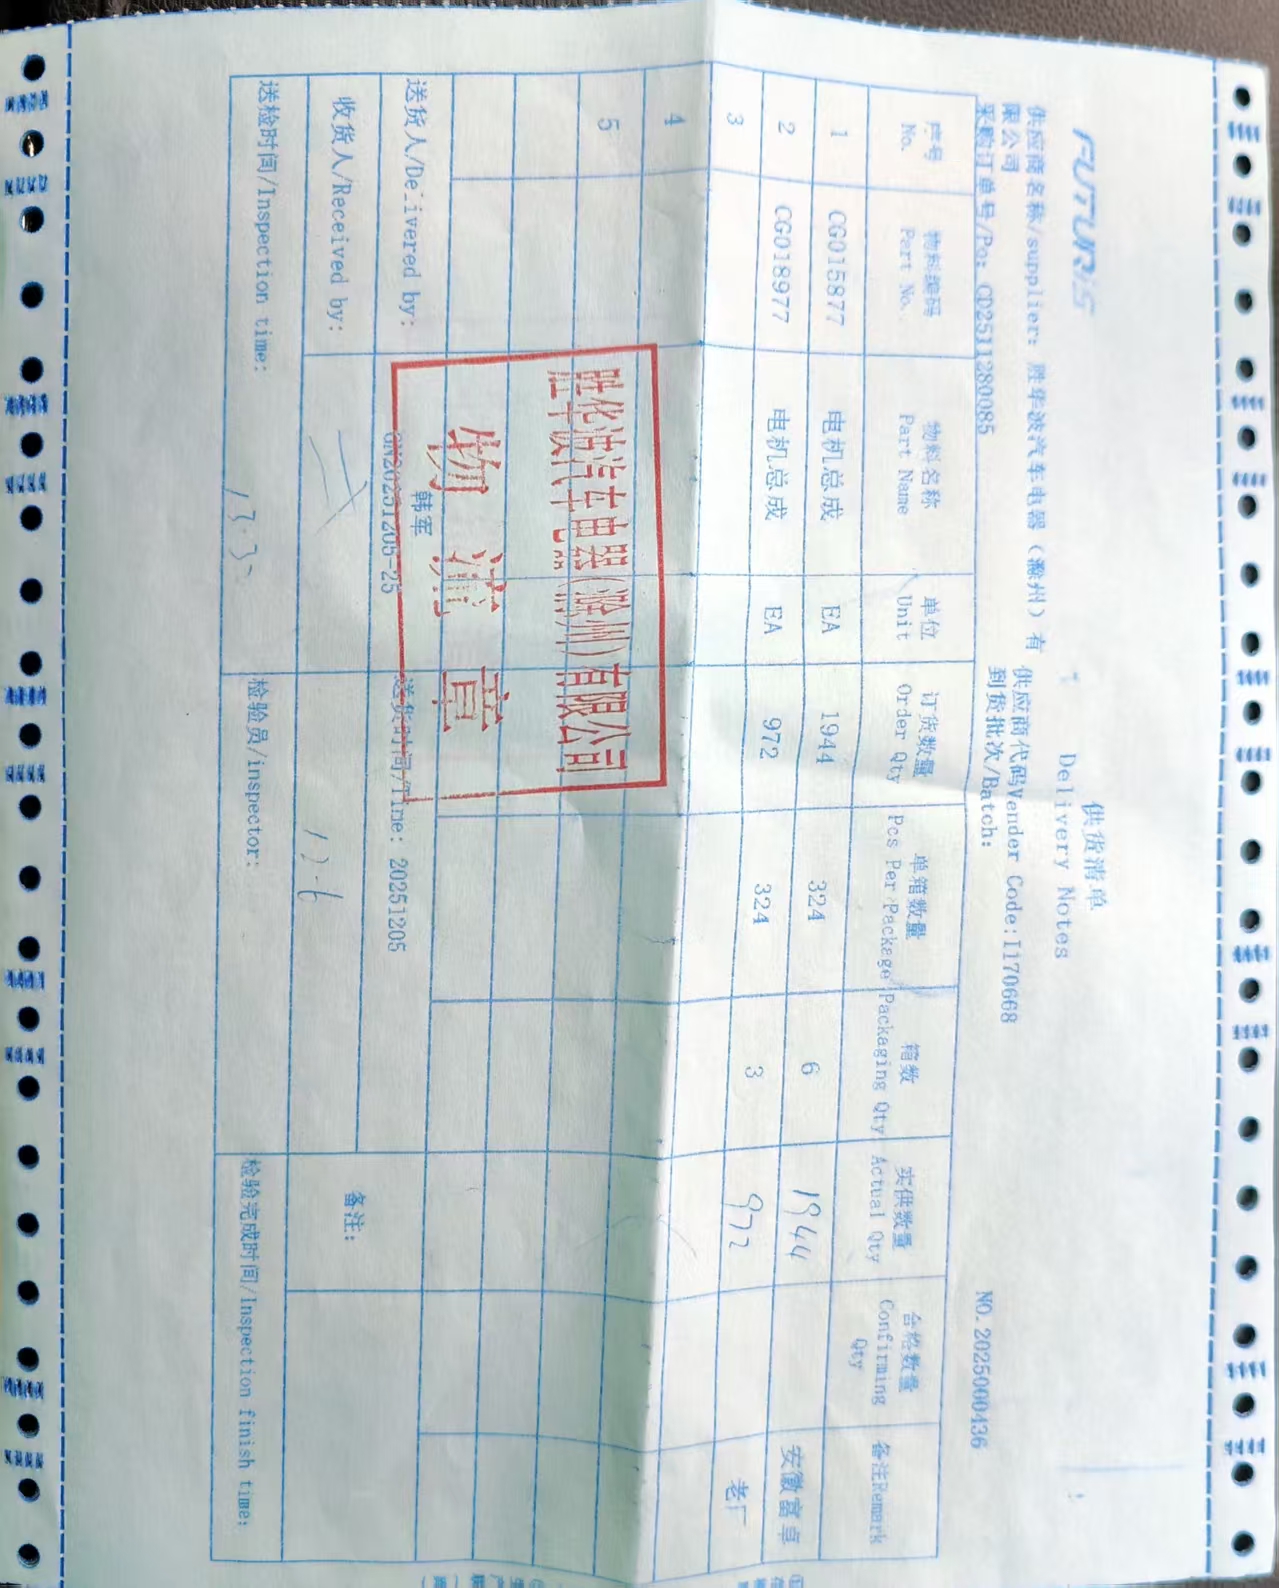 FUTURIS
供货清单
Delivery Notes
供应商名称/supplier: 胜华波汽车电器（滁州）有限公司
供应商代码Vender Code:I170668
NO. 2025000436
采购订单号/Po: CD2511280085
到货批次/Batch:
序号 物料编码 物料名称 单位 订货数量 单箱数量 箱数 实供数量 合格数量 备注Remark
No. Part No. Part Name Unit Order Qty Pcs Per Package Packaging Qty Actual Qty Confirming Qty
1 CG015877 电机总成 EA 1944 324 6 1944 安徽富卓
2 CG018977 电机总成 EA 972 324 3 972 老厂
3
4
5
胜华波汽车电器(滁州)有限公司
物流章
送货人/Delivered by: 韩军
GN20251205-25
送货时间/Time: 20251205
收货人/Received by:
12-6
备注:
送检时间/Inspection time:
检验员/inspector:
检验完成时间/Inspection finish time: